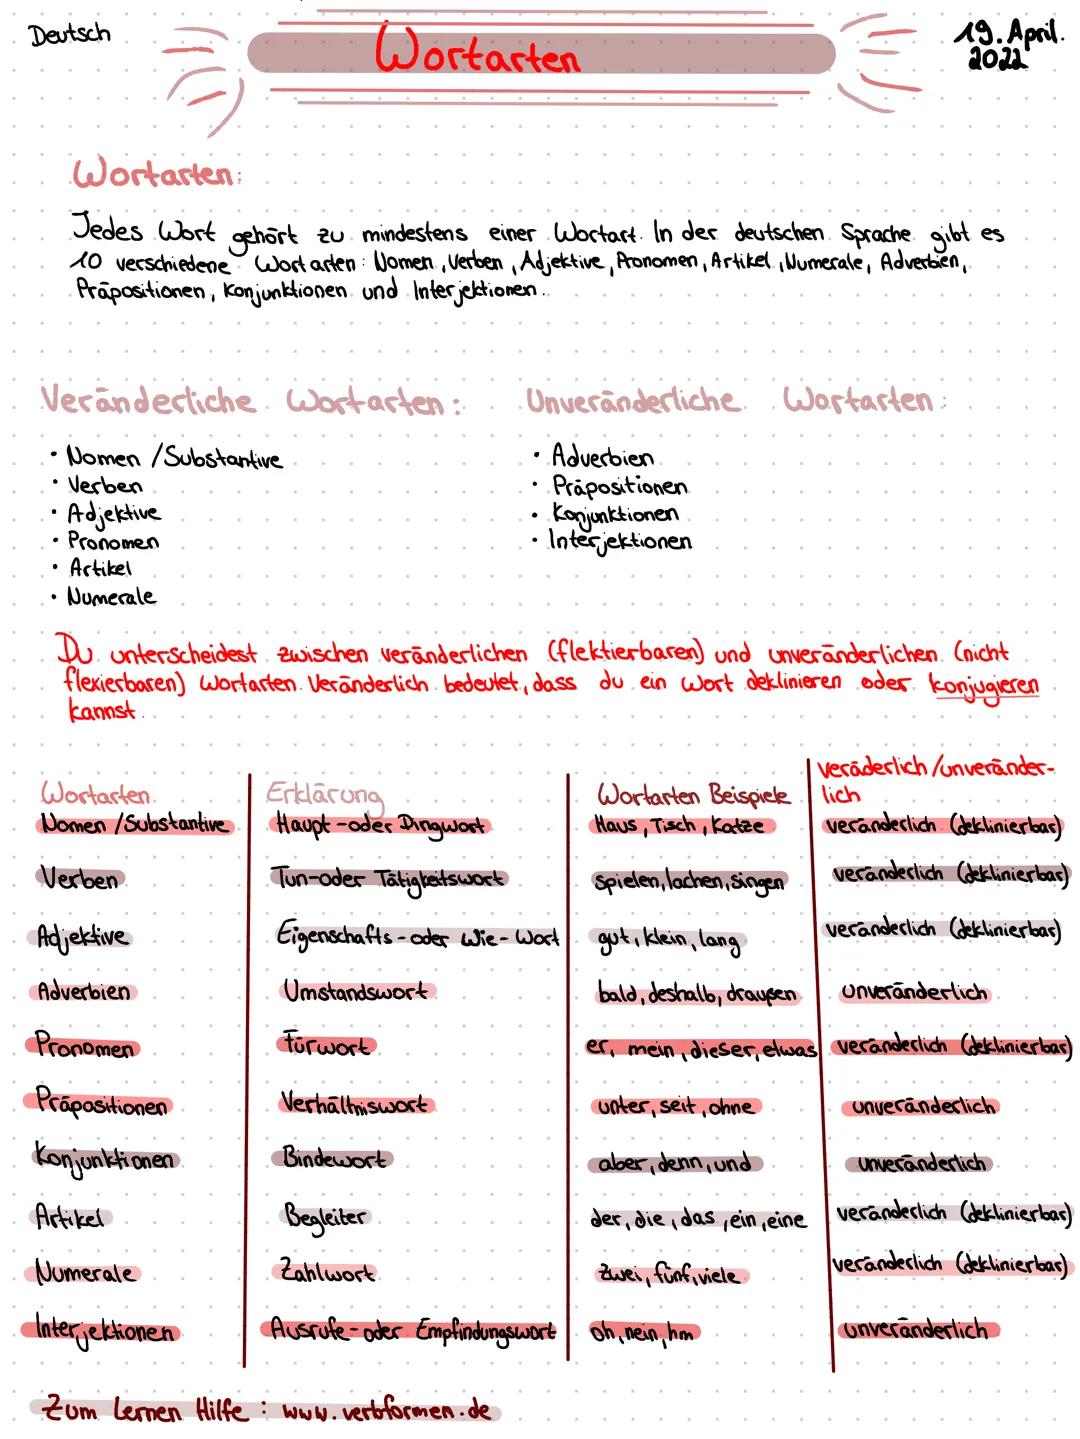 Deutsch
Wortarten
19. April.
2022
Wortarten:
Jedes Wort gehört zu mindestens einer Wortart. In der deutschen Sprache gibt es
10 verschiedene Wortarten: Nomen, Verben, Adjektive, Pronomen, Artikel, Numerale, Adverbien,
Präpositionen, Konjunktionen und Interjektionen.
Veränderliche Wortarten:
• Nomen /Substantive
• Verben
• Adjektive
• Pronomen
• Artikel
• Numerale
Unveränderliche Wortarten:
• Adverbien
• Präpositionen
• Konjunktionen
• Interjektionen
Du unterscheidest zwischen veränderlichen (flektierbaren) und unveränderlichen (nicht
flexierbaren) Wortarten. Veränderlich bedeutet, dass du ein Wort deklinieren oder konjugieren
kannst.
Wortarten Erklärung Wortarten Beispiele veräderlich/unveränder-
lich
Nomen /Substantive Haupt-oder Dingwort Haus, Tisch, Katze veränderlich (deklinierbar)
Verben Tun-oder Tätigkeitswort spielen, lachen, singen veränderlich (deklinierbar)
Adjektive Eigenschafts-oder Wie-Wort gut, klein, lang veränderlich (deklinierbar)
Adverbien Umstandswort bald, deshalb, draußen unveränderlich
Pronomen Fürwort er, mein, dieser, etwas veränderlich (deklinierbar)
Präpositionen Verhältniswort unter, seit, ohne unveränderlich
Konjunktionen Bindewort aber, denn, und unveränderlich
Artikel Begleiter der, die, das, ein, eine veränderlich (deklinierbar)
Numerale Zahlwort zwei, fünf, viele veränderlich (deklinierbar)
Interjektionen Ausrufe-oder Empfindungswort oh, nein, hm unveränderlich
Zum Lernen Hilfe: www.verbformen.de